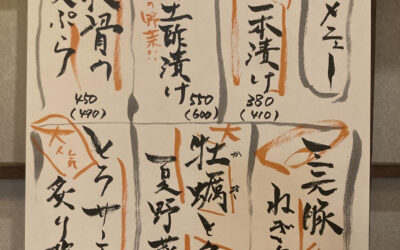 メニュー
一本漬け
380
(410)
土酢漬け
の野菜!!
550
(600)
骨の
天ぷら
450
(490)
三元豚
ねぎ
大
牡蠣と
かき
夏野菜
大人気
とろサーモ
炙り